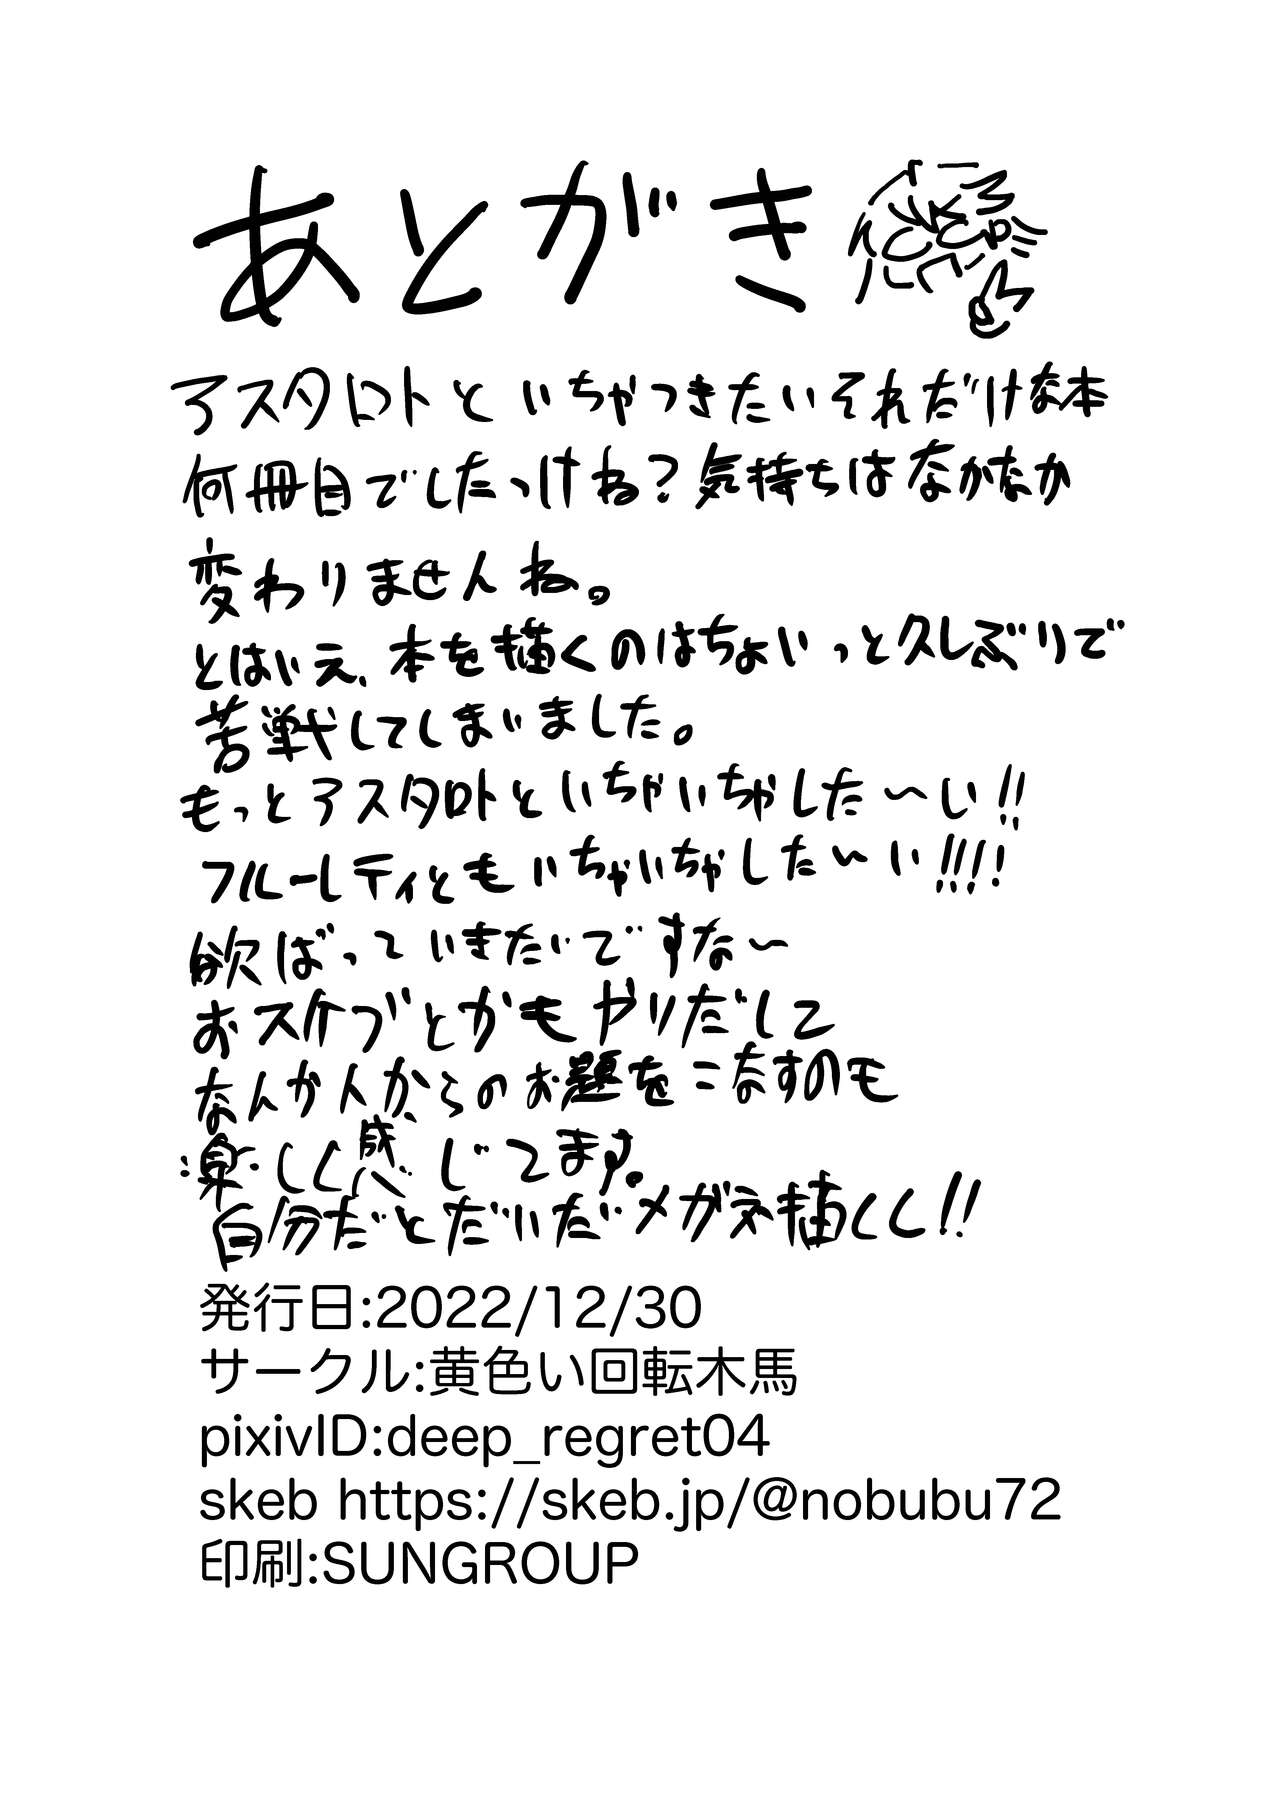 あとがき
アスタロトといちゃつきたいそれだけな本
何冊目でしたっけね？気持ちはなかなか
変わりませんね。
とはいえ、本を描くのはちょいっと久しぶりで
苦戦してしまいました。
もっとアスタロトといちゃいちゃした〜い!!
フルーレティともいちゃいちゃした〜い!!!!
欲ばっていきたいですな〜
おスケブとかもやりだして
なんか人からのお題をこなすのも
楽しく感じてます。
自分だとだいたいメガネ描くし!!
発行日:2022/12/30
サークル:黄色い回転木馬
pixivID:deep_regret04
skeb https://skeb.jp/@nobubu72
印刷:SUNGROUP